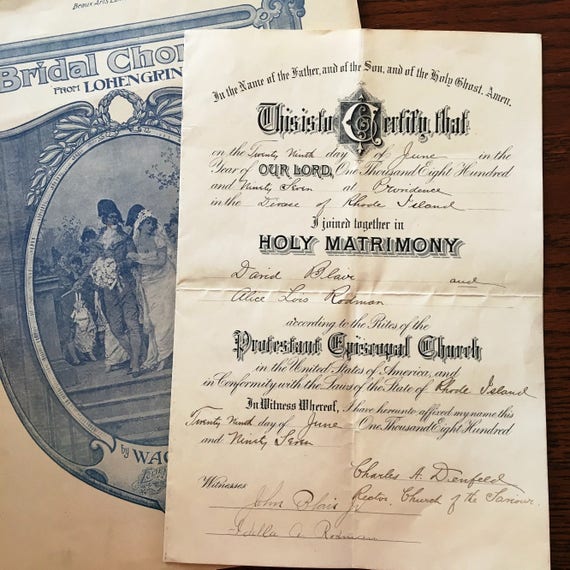 Bridal Chor
FROM LOHENGRIN
by WAG
In the Name of the Father, and of the Son, and of the Holy Ghost. Amen.
This is to Certify, that
on the Twenty Ninth day of June in the
Year of OUR LORD, One Thousand Eight Hundred
and Ninety Seven at Providence
in the Diocese of Rhode Island
I joined together in
HOLY MATRIMONY
David Blair and
Alice Lois Rodman
according to the Rites of the
Protestant Episcopal Church
in the United States of America, and
in Conformity with the Laws of the State of Rhode Island
In Witness Whereof, I have hereunto affixed my name this
Twenty Ninth day of June One Thousand Eight Hundred
and Ninety Seven
Charles A. Denfeld
Rector. Church of the Saviour.
Witnesses
John Blair Jr
Idella A Rodman